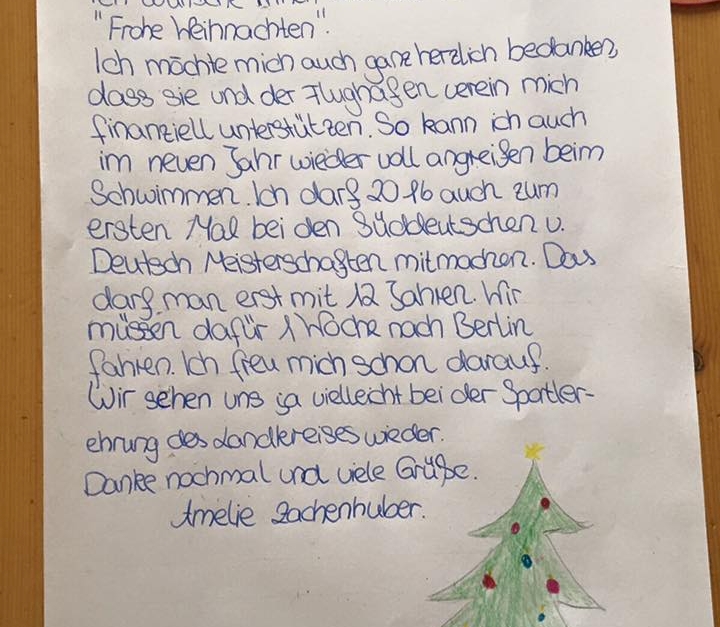 "Frohe Weihnachten".
Ich möchte mich auch ganz herzlich bedanken,
dass sie und der Flughafen verein mich
finanziell unterstützen. So kann ich auch
im neuen Jahr wieder voll angreifen beim
Schwimmen. Ich darf 2016 auch zum
ersten Mal bei den Süddeutschen u.
Deutsch Meisterschaften mitmachen. Das
darf man erst mit 12 Jahren. Wir
müssen dafür 1 Woche nach Berlin
fahren. Ich freu mich schon darauf.
Wir sehen uns ja vielleicht bei der Sportler-
ehrung des Landkreises wieder.
Danke nochmal und viele Grüße.
Amelie Zachenhuber.